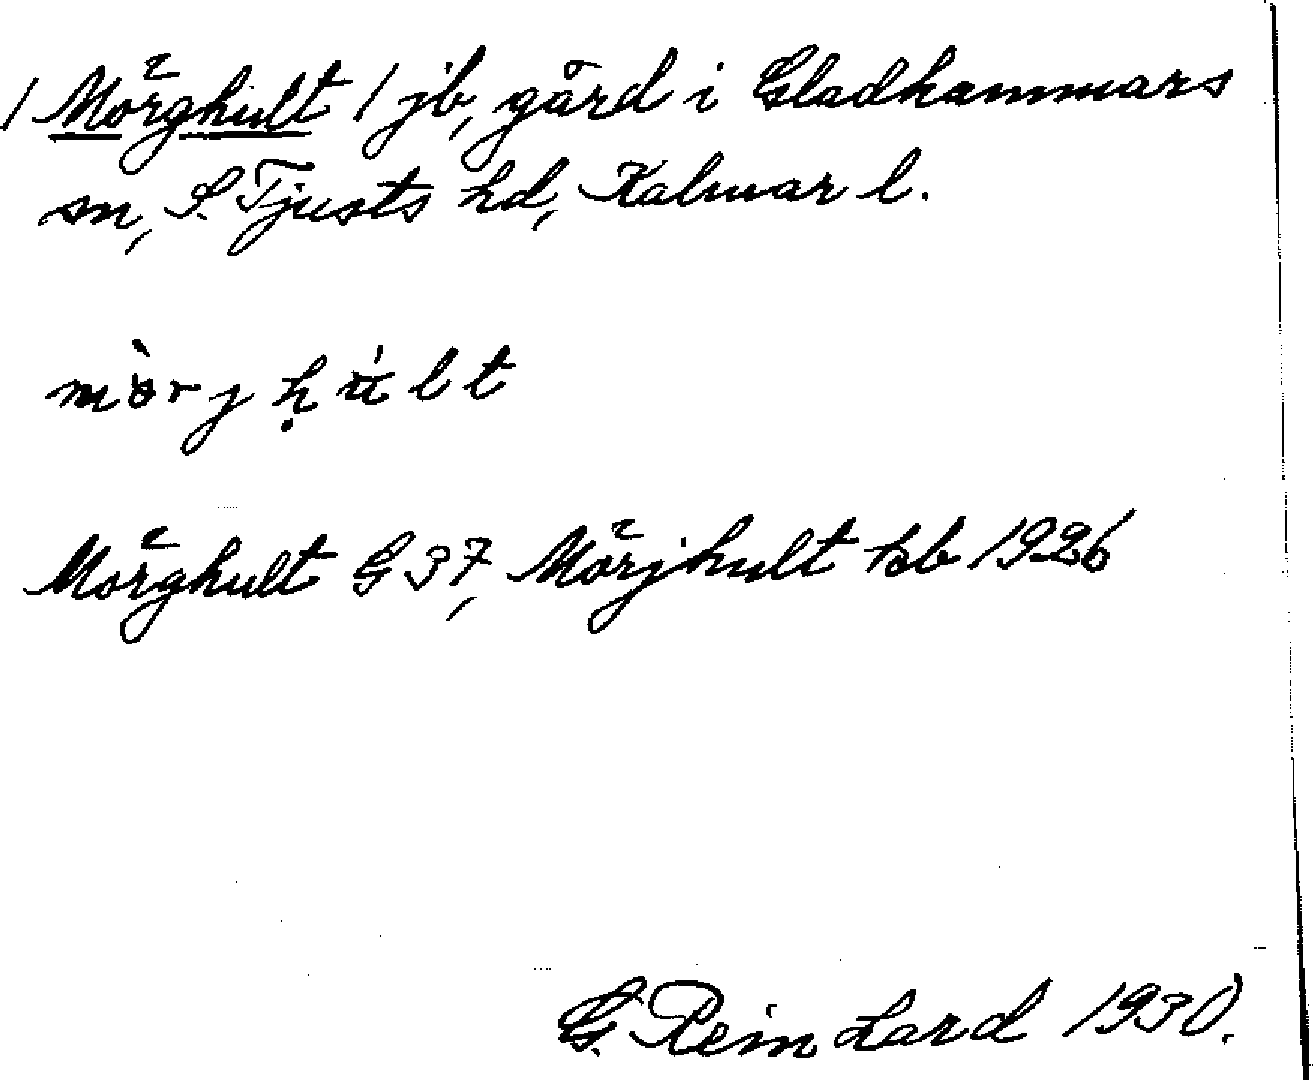 / Mörghult / jb, gård i Gladhammars
sn, S. Tjusts hd, Kalmar l.
mòrj ḥúlt
Mörghult G 37, Mörjhult kb 1926
G. Reinhard 1930.